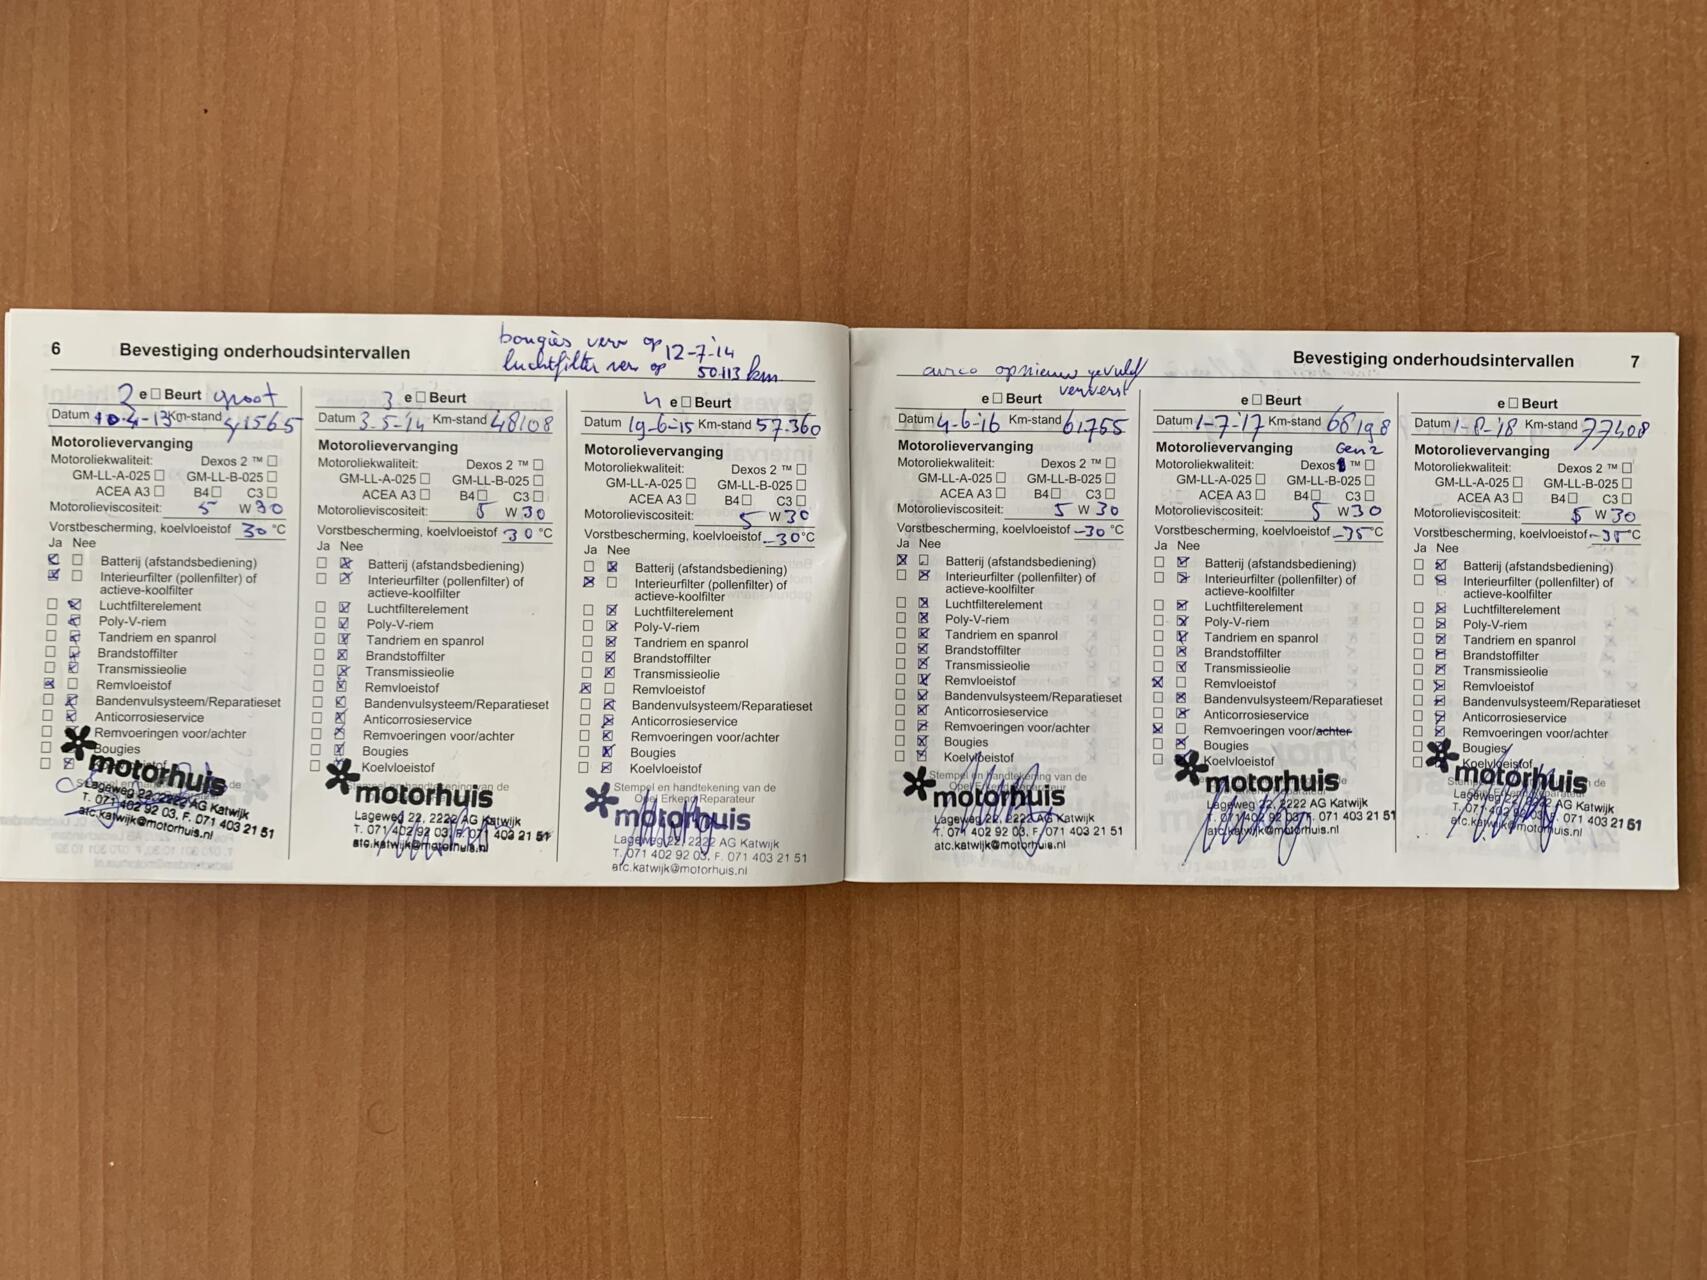 6 Bevestiging onderhoudsintervallen
bougiès verv op 12-7-'14
luchtfilter verv op 50.113 km
2 e Beurt groot
Datum 10-4-13 Km-stand 41565
Motorolievervanging
Motoroliekwaliteit: Dexos 2 ™
GM-LL-A-025 GM-LL-B-025
ACEA A3 B4 C3
Motorolieviscositeit: 5 W 30
Vorstbescherming, koelvloeistof 30 °C
Ja Nee
Batterij (afstandsbediening)
Interieurfilter (pollenfilter) of
actieve-koolfilter
Luchtfilterelement
Poly-V-riem
Tandriem en spanrol
Brandstoffilter
Transmissieolie
Remvloeistof
Bandenvulsysteem/Reparatieset
Anticorrosieservice
Remvoeringen voor/achter
Bougies
motorhuis
Lageweg 22, 2222 AG Katwijk
T. 071 402 92 03, F. 071 403 21 51
atc.katwijk@motorhuis.nl
3 e Beurt
Datum 3-5-'14 Km-stand 48108
Motorolievervanging
Motoroliekwaliteit: Dexos 2 ™
GM-LL-A-025 GM-LL-B-025
ACEA A3 B4 C3
Motorolieviscositeit: 5 W 30
Vorstbescherming, koelvloeistof 30 °C
Ja Nee
Batterij (afstandsbediening)
Interieurfilter (pollenfilter) of
actieve-koolfilter
Luchtfilterelement
Poly-V-riem
Tandriem en spanrol
Brandstoffilter
Transmissieolie
Remvloeistof
Bandenvulsysteem/Reparatieset
Anticorrosieservice
Remvoeringen voor/achter
Bougies
Koelvloeistof
Stempel en handtekening van de
motorhuis
Lageweg 22, 2222 AG Katwijk
T. 071 402 92 03, F. 071 403 21 51
atc.katwijk@motorhuis.nl
4 e Beurt
Datum 19-6-'15 Km-stand 57.360
Motorolievervanging
Motoroliekwaliteit: Dexos 2 ™
GM-LL-A-025 GM-LL-B-025
ACEA A3 B4 C3
Motorolieviscositeit: 5 W 30
Vorstbescherming, koelvloeistof -30 °C
Ja Nee
Batterij (afstandsbediening)
Interieurfilter (pollenfilter) of
actieve-koolfilter
Luchtfilterelement
Poly-V-riem
Tandriem en spanrol
Brandstoffilter
Transmissieolie
Remvloeistof
Bandenvulsysteem/Reparatieset
Anticorrosieservice
Remvoeringen voor/achter
Bougies
Koelvloeistof
Stempel en handtekening van de
Opel Erkend Reparateur
motorhuis
Lageweg 22, 2222 AG Katwijk
T. 071 402 92 03, F. 071 403 21 51
atc.katwijk@motorhuis.nl
Bevestiging onderhoudsintervallen 7
airco opnieuw gevuld
ververst
e Beurt
Datum 4-6-'16 Km-stand 61.755
Motorolievervanging
Motoroliekwaliteit: Dexos 2 ™
GM-LL-A-025 GM-LL-B-025
ACEA A3 B4 C3
Motorolieviscositeit: 5 W 30
Vorstbescherming, koelvloeistof -30 °C
Ja Nee
Batterij (afstandsbediening)
Interieurfilter (pollenfilter) of
actieve-koolfilter
Luchtfilterelement
Poly-V-riem
Tandriem en spanrol
Brandstoffilter
Transmissieolie
Remvloeistof
Bandenvulsysteem/Reparatieset
Anticorrosieservice
Remvoeringen voor/achter
Bougies
Koelvloeistof
Stempel en handtekening van de
motorhuis
Lageweg 22, 2222 AG Katwijk
T. 071 402 92 03, F. 071 403 21 51
atc.katwijk@motorhuis.nl
e Beurt
Datum 1-7-'17 Km-stand 68198
Motorolievervanging Gen 2
Motoroliekwaliteit: Dexos 1 ™
GM-LL-A-025 GM-LL-B-025
ACEA A3 B4 C3
Motorolieviscositeit: 5 W 30
Vorstbescherming, koelvloeistof -35 °C
Ja Nee
Batterij (afstandsbediening)
Interieurfilter (pollenfilter) of
actieve-koolfilter
Luchtfilterelement
Poly-V-riem
Tandriem en spanrol
Brandstoffilter
Transmissieolie
Remvloeistof
Bandenvulsysteem/Reparatieset
Anticorrosieservice
Remvoeringen voor/achter
Bougies
Koelvloeistof
motorhuis
Lageweg 22, 2222 AG Katwijk
T. 071 402 92 03, F. 071 403 21 51
atc.katwijk@motorhuis.nl
e Beurt
Datum 1-8-'18 Km-stand 77408
Motorolievervanging
Motoroliekwaliteit: Dexos 2 ™
GM-LL-A-025 GM-LL-B-025
ACEA A3 B4 C3
Motorolieviscositeit: 5 W 30
Vorstbescherming, koelvloeistof -35 °C
Ja Nee
Batterij (afstandsbediening)
Interieurfilter (pollenfilter) of
actieve-koolfilter
Luchtfilterelement
Poly-V-riem
Tandriem en spanrol
Brandstoffilter
Transmissieolie
Remvloeistof
Bandenvulsysteem/Reparatieset
Anticorrosieservice
Remvoeringen voor/achter
Bougies
Koelvloeistof
motorhuis
Lageweg 22, 2222 AG Katwijk
T. 071 402 92 03, F. 071 403 21 51
atc.katwijk@motorhuis.nl